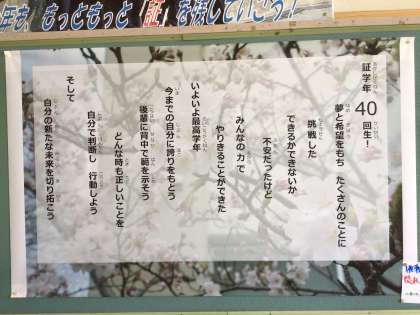 年も、もっともっと「証」を残していこう！
証学年 40回生！
夢と希望をもち たくさんのことに
挑戦した
できるかできないか
不安だったけど
みんなの力で
やりきることができた
いよいよ最高学年
今までの自分に誇りをもとう
後輩に背中で範を示そう
どんな時も正しいことを
自分で判断し 行動しよう
そして
自分の新たな未来を切り拓こう